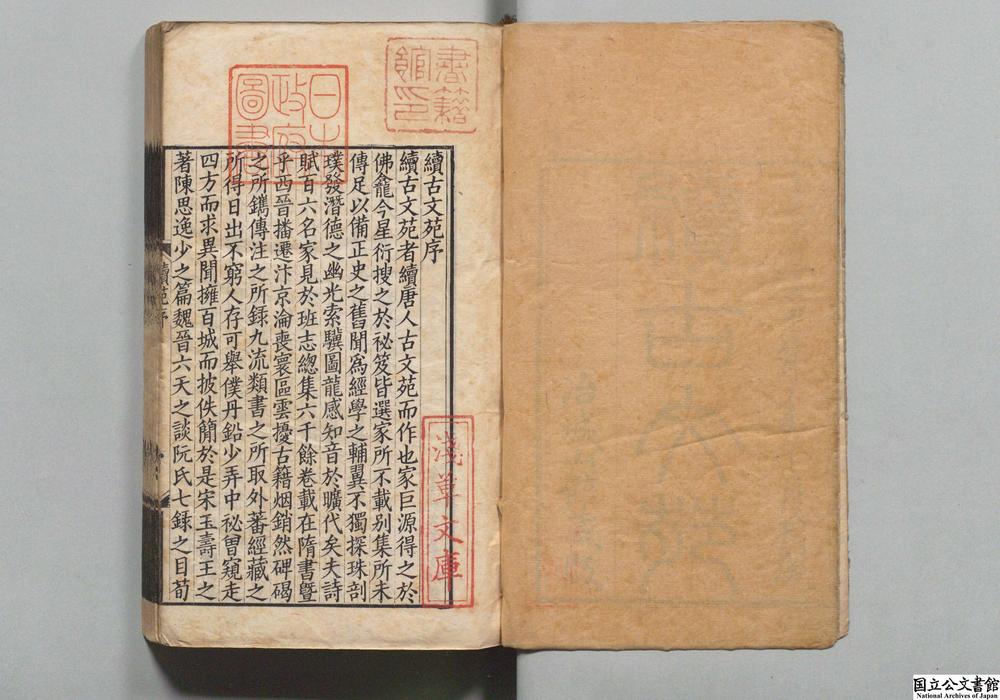 續古文苑序
續古文苑者續唐人古文苑而作也家巨源得之於
佛龕今星衍搜之於祕笈皆選家所不載別集所未
傳足以備正史之舊聞爲經學之輔翼不獨探珠剖
璞發潛德之幽光索驥圖龍感知音於曠代矣夫詩
賦百六名家見於班志緫集六千餘卷載在隋書曁
乎西晉播遷汴京淪喪寰區雲擾古籍烟銷然碑碣
之所鐫傳注之所録九流類書之所取外蕃經藏之
所得日出不窮人存可舉僕丹鉛少弄中祕曾窺走
四方而求異聞擁百城而披佚簡於是宋玉壽王之
著陳思逸少之篇魏晉六天之談阮氏七録之目荀
續苑序
日本
政府
圖書
書籍
館印
淺草文庫
国立公文書館
National Archives of Japan